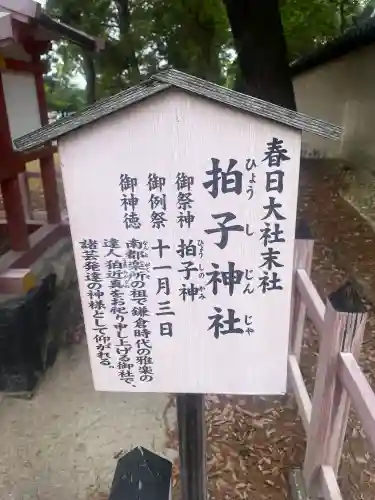 春日大社末社
拍子神社
ひょうしじんじゃ
御祭神 拍子神
ひょうしのかみ
御例祭 十一月三日
御神徳
南都楽所の祖で鎌倉時代の雅楽の
達人狛近真をお祀り申し上げる御社で、
諸芸発達の神様として仰がれる。